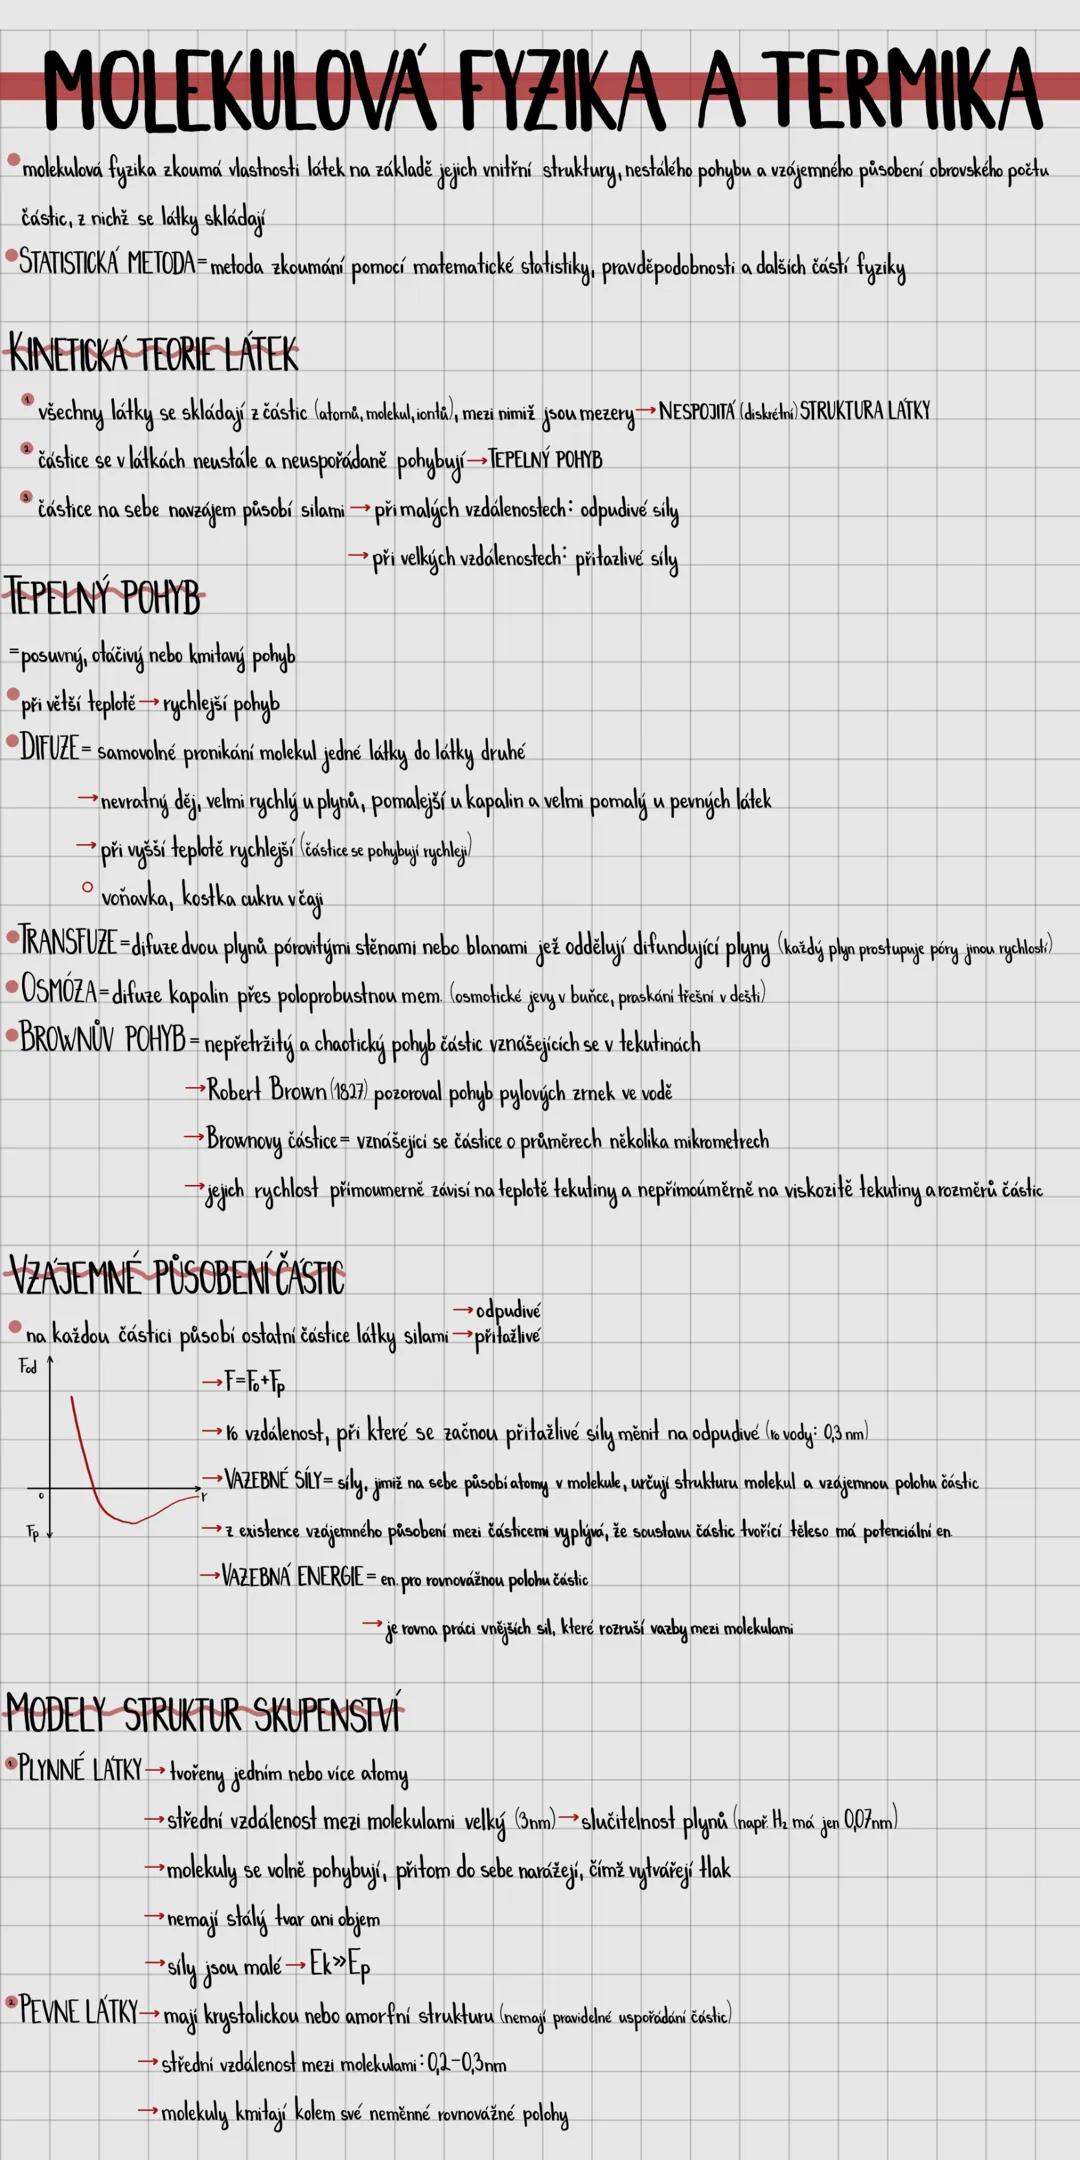 MOLEKULOVÁ FYZIKA A TERMIKA
molekulová fyzika zkoumá vlastnosti látek na základě jejich vnitřní struktury, nestálého pohybu a vzájemného působení obrovského počtu
částic, z nichž se látky skládají
STATISTICKÁ METODA = metoda zkoumání pomocí matematické statistiky, pravděpodobnosti a dalších částí fyziky
KINETICKÁ TEORIE LÁTEK
1 všechny látky se skládají z částic (atomů, molekul, iontů), mezi nimiž jsou mezery → NESPOJITÁ (diskrétní) STRUKTURA LÁTKY
2 částice se v látkách neustále a neuspořádaně pohybují → TEPELNÝ POHYB
3 částice na sebe navzájem působí silami → při malých vzdálenostech: odpudivé síly
→ při velkých vzdálenostech: přitazlivé síly
TEPELNÝ POHYB
= posuvný, otáčivý nebo kmitavý pohyb
při větší teplotě → rychlejší pohyb
DIFUZE = samovolné pronikání molekul jedné látky do látky druhé
→ nevratný děj, velmi rychlý u plynů, pomalejší u kapalin a velmi pomalý u pevných látek
→ při vyšší teplotě rychlejší (částice se pohybují rychleji)
voňavka, kostka cukru v čaji
TRANSFUZE = difuze dvou plynů pórovitými stěnami nebo blanami jež oddělují difundující plyny (každý plyn prostupuje póry jinou rychlostí)
OSMÓZA = difuze kapalin přes poloprobustnou mem. (osmotické jevy v buňce, praskání třešní v dešti)
BROWNŮV POHYB = nepřetržitý a chaotický pohyb částic vznášejících se v tekutinách
→ Robert Brown (1827) pozoroval pohyb pylových zrnek ve vodě
→ Brownovy částice = vznášející se částice o průměrech několika mikrometrech
→ jejich rychlost přímoumerně závisí na teplotě tekutiny a nepřímoúměrně na viskozitě tekutiny a rozměrů částic
VZÁJEMNÉ PŮSOBENÍ ČÁSTIC
→ odpudivé
na každou částici působí ostatní částice látky silami → přitažlivé
Fod
→ F=Fo+Fp
→ r0 vzdálenost, při které se začnou přitažlivé síly měnit na odpudivé (r0 vody: 0,3 nm)
→ VAZEBNÉ SÍLY = síly, jimiž na sebe působí atomy v molekule, určují strukturu molekul a vzájemnou polohu částic
0
r
Fp
→ z existence vzájemného působení mezi částicemi vyplývá, že soustavu částic tvořící těleso má potenciální en.
→ VAZEBNÁ ENERGIE = en. pro rovnovážnou polohu částic
→ je rovna práci vnějších sil, které rozruší vazby mezi molekulami
MODELY STRUKTUR SKUPENSTVÍ
1 PLYNNÉ LÁTKY → tvořeny jedním nebo více atomy
→ střední vzdálenost mezi molekulami velký (3nm) → slučitelnost plynů (např. H₂ má jen 0,07nm)
→ molekuly se volně pohybují, přitom do sebe narážejí, čímž vytvářejí tlak
→ nemají stálý tvar ani objem
→ síly jsou malé → Ek»Ep
2 PEVNE LÁTKY → mají krystalickou nebo amorfní strukturu (nemají pravidelné uspořádání částic)
→ střední vzdálenost mezi molekulami: 0,2-0,3nm
→ molekuly kmitají kolem své neměnné rovnovážné polohy